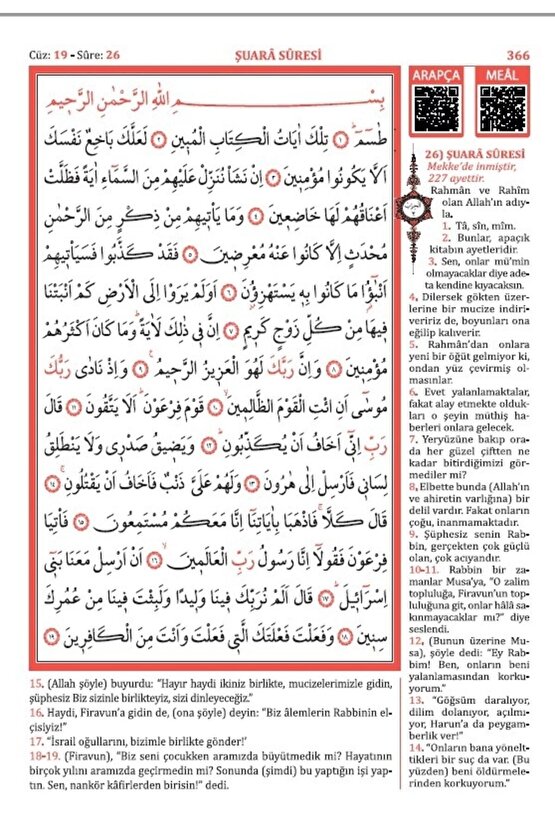 Cüz: 19 - Sûre: 26
ŞUARÂ SÛRESİ
366
بِسْــــــمِ اللّٰهِ الرَّحْمٰنِ الرَّحٖيمِ
طٰسٓمٓ ﴿١﴾ تِلْكَ اٰيَاتُ الْكِتَابِ الْمُبٖينِ ﴿٢﴾ لَعَلَّكَ بَاخِعٌ نَفْسَكَ
اَلَّا يَكُونُوا مُؤْمِنٖينَ ﴿٣﴾ اِنْ نَشَأْ نُنَزِّلْ عَلَيْهِمْ مِنَ السَّمَٓاءِ اٰيَةً فَظَلَّتْ
اَعْنَاقُهُمْ لَهَا خَاضِعٖينَ ﴿٤﴾ وَمَا يَأْتٖيهِمْ مِنْ ذِكْرٍ مِنَ الرَّحْمٰنِ
مُحْدَثٍ اِلَّا كَانُوا عَنْهُ مُعْرِضٖينَ ﴿٥﴾ فَقَدْ كَذَّبُوا فَسَيَأْتٖيهِمْ
اَنْبٰٓؤُ۬ا مَا كَانُوا بِهٖ يَسْتَهْزِؤُ۫نَ ﴿٦﴾ اَوَلَمْ يَرَوْا اِلَى الْاَرْضِ كَمْ اَنْبَتْنَا
فٖيهَا مِنْ كُلِّ زَوْجٍ كَرٖيمٍ ﴿٧﴾ اِنَّ فٖي ذٰلِكَ لَاٰيَةًؕ وَمَا كَانَ اَكْثَرُهُمْ
مُؤْمِنٖينَ ﴿٨﴾ وَاِنَّ رَبَّكَ لَهُوَ الْعَزٖيزُ الرَّحٖيمُ ﴿٩﴾ وَاِذْ نَادٰى رَبُّكَ
مُوسٰٓى اَنِ ائْتِ الْقَوْمَ الظَّالِمٖينَۙ ﴿١٠﴾ قَوْمَ فِرْعَوْنَؕ اَلَا يَتَّقُونَ ﴿١١﴾ قَالَ
رَبِّ اِنّٖٓي اَخَافُ اَنْ يُكَذِّبُونِؕ ﴿١٢﴾ وَيَضٖيقُ صَدْرٖي وَلَا يَنْطَلِقُ
لِسَانٖي فَاَرْسِلْ اِلٰى هٰرُونَ ﴿١٣﴾ وَلَهُمْ عَلَيَّ ذَنْبٌ فَاَخَافُ اَنْ يَقْتُلُونِۚ ﴿١٤﴾
قَالَ كَلَّاۚ فَاذْهَبَا بِاٰيَاتِنَٓا اِنَّا مَعَكُمْ مُسْتَمِعُونَ ﴿١٥﴾ فَأْتِيَا
فِرْعَوْنَ فَقُولَٓا اِنَّا رَسُولُ رَبِّ الْعَالَمٖينَۙ ﴿١٦﴾ اَنْ اَرْسِلْ مَعَنَا بَنٖٓي
اِسْرَٓائٖلَؕ ﴿١٧﴾ قَالَ اَلَمْ نُرَبِّكَ فٖينَا وَلٖيدًا وَلَبِثْتَ فٖينَا مِنْ عُمُرِكَ
سِنٖينَۙ ﴿١٨﴾ وَفَعَلْتَ فَعْلَتَكَ الَّتٖي فَعَلْتَ وَاَنْتَ مِنَ الْكَافِرٖينَ ﴿١٩﴾
ARAPÇA
MEÂL
26) ŞUARÂ SÛRESİ
Mekke'de inmiştir,
227 ayettir.
Rahmân ve Rahîm
olan Allah'ın adıy-
la.
1. Tâ, sîn, mîm.
2. Bunlar, apaçık
kitabın ayetleridir.
3. Sen, onlar mü'min
olmayacaklar diye ade-
ta kendine kıyacaksın.
4. Dilersek gökten üzer-
lerine bir mucize indiri-
veririz de, boyunları ona
eğilip kalıverir.
5. Rahmân'dan onlara
yeni bir öğüt gelmiyor ki,
ondan yüz çevirmiş ol-
masınlar.
6. Evet yalanlamaktalar,
fakat alay etmekte olduk-
ları o şeyin müthiş ha-
berleri onlara gelecek.
7. Yeryüzüne bakıp ora-
da her güzel çiftten ne
kadar bitirdiğimizi gör-
mediler mi?
8. Elbette bunda (Allah'ın
ve ahiretin varlığına) bir
delil vardır. Fakat onların
çoğu, inanmamaktadır.
9. Şüphesiz senin Rab-
bin, gerçekten çok güçlü
olan, çok acıyandır.
10-11. Rabbin bir za-
manlar Musa'ya, "O zalim
topluluğa, Firavun'un top-
luluğuna git, onlar hâlâ sa-
kınmayacaklar mı?" diye
seslendi.
12. (Bunun üzerine Mu-
sa), şöyle dedi: "Ey Rab-
bim! Ben, onların beni
yalanlamasından korku-
yorum."
13. "Göğsüm daralıyor,
dilim dolanıyor, açılmı-
yor, Harun'a da peygam-
berlik ver!"
14. "Onların bana yönelt-
tikleri bir suç da var. (Bu
yüzden) beni öldürmele-
rinden korkuyorum."
15. (Allah şöyle) buyurdu: "Hayır haydi ikiniz birlikte, mucizelerimizle gidin,
şüphesiz Biz sizinle birlikteyiz, sizi dinleyeceğiz."
16. Haydi, Firavun'a gidin de, (ona şöyle) deyin: "Biz âlemlerin Rabbinin el-
çisiyiz!"
17. "İsrail oğullarını, bizimle birlikte gönder!'
18-19. (Firavun), "Biz seni çocukken aramızda büyütmedik mi? Hayatının
birçok yılını aramızda geçirmedin mi? Sonunda (şimdi) bu yaptığın işi yap-
tın. Sen, nankör kâfirlerden birisin!" dedi.